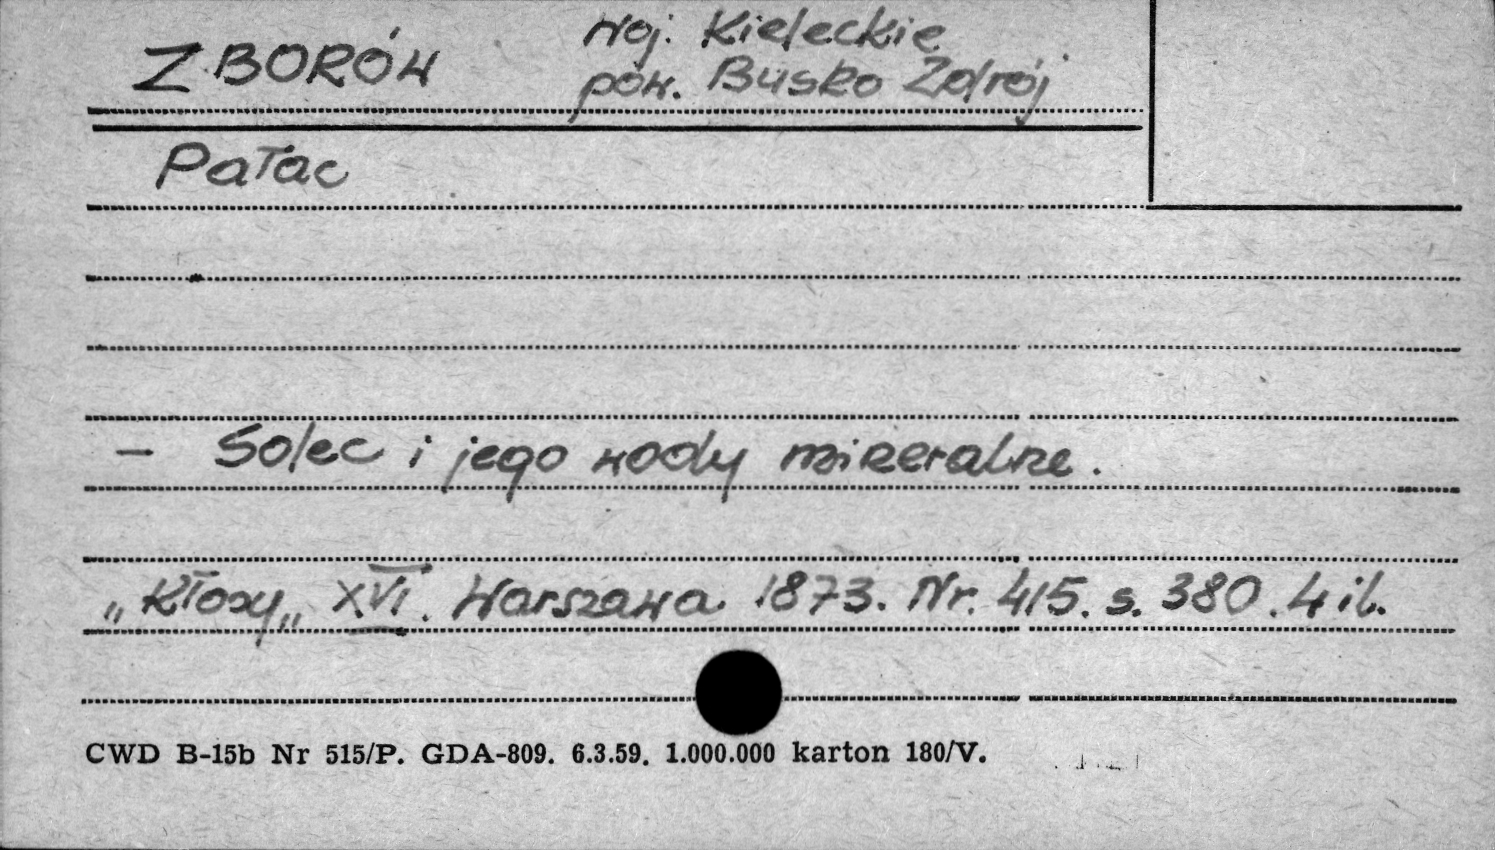 ZBORÓW
woj. Kieleckie
pow. Busko Zdrój
Pałac
– Solec i jego wody mineralne.
„Kłosy„ XVI. Warszawa. 1873. Nr. 415. s. 380. 4 il.
CWD B-15b Nr 515/P. GDA-809. 6.3.59. 1.000.000 karton 180/V.